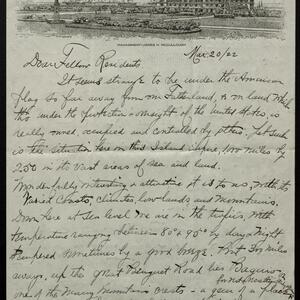 MANAGEMENT-JAMES H. McCULLOUGH
Mar. 20/22
Dear Fellow Residents
It seems strange to be under the American
flag so far away from our Fatherland, & on land which
tho under the protection & might of the United States, is
really owned, occupied and controlled by others, yet such
is the situation here on this Island
250 in its vast areas of sea and land.
Wonderfully interesting & attractive it is to us, with its
Varied Coasts, Climates, Low lands and Mountains.
Down here at sea level we are in the tropics, with
temperature ranging between 80° & 90° by day & Night
tempered sometimes by a good breeze. But
away, up the great Benguet Road lies Baguio
one of the Many Mountain crests - a gem of a place